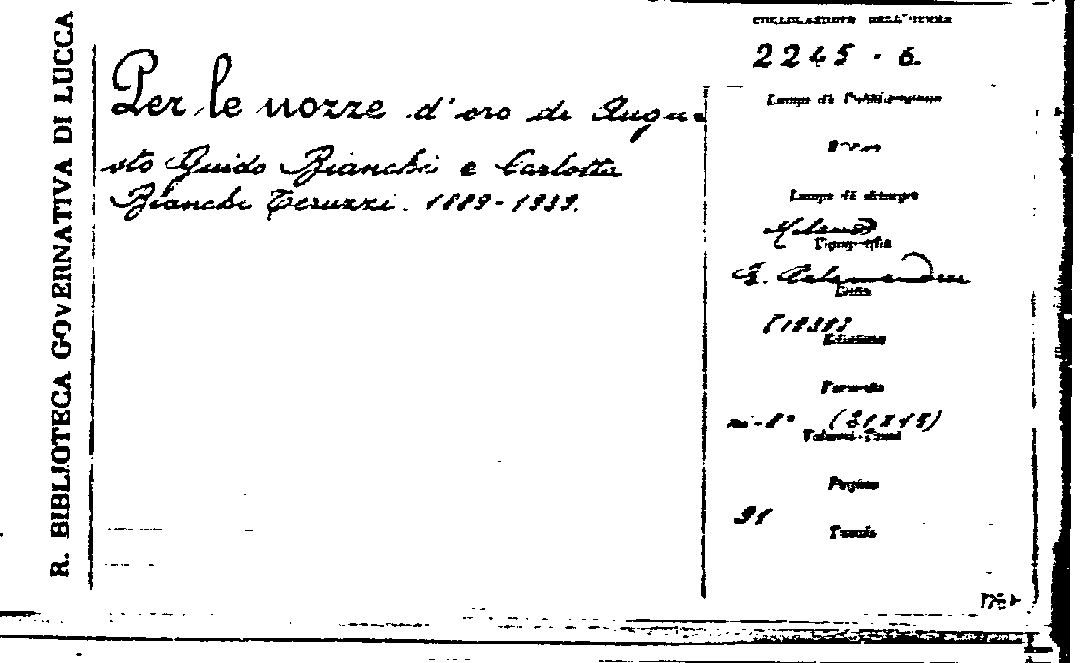 R. BIBLIOTECA GOVERNATIVA DI LUCCA
Per le nozze d'oro di Augu-
sto Guido Bianchi e Carlotta
Bianchi Teruzzi. 1889-1939.
COLLOCAZIONE DELL'OPERA
2245 - 6.
Luogo di Pubblicazione
Luogo di stampa
Milano
Tipografia
Data
Edizione
Formato
in-8° (21X15)
Volumi-Tomi
Pagine
31
Tavole